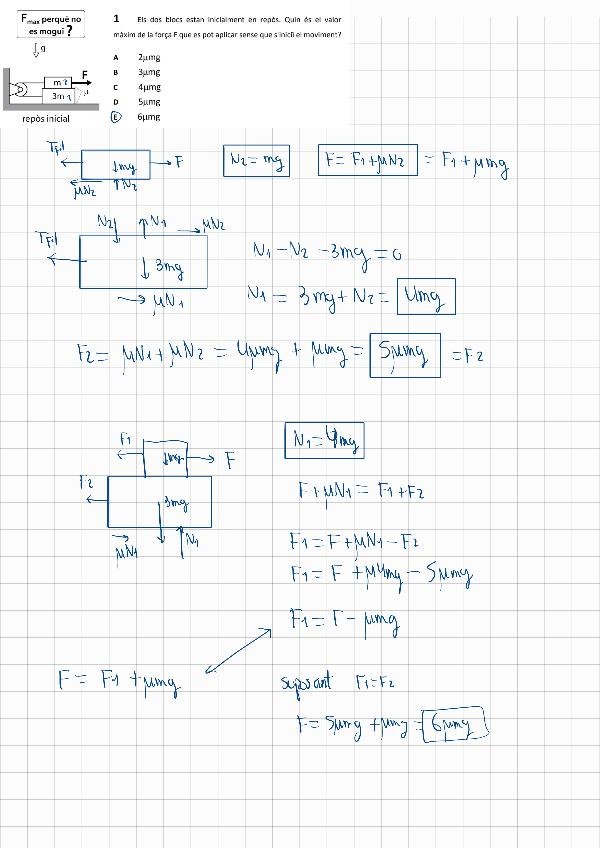 Fmax perquè no
es mogui ?
g
F
m 2
3m 1
μ
repòs inicial
1 Els dos blocs estan inicialment en repòs. Quin és el valor
màxim de la força F que es pot aplicar sense que s'iniciï el moviment?
A 2μmg
B 3μmg
C 4μmg
D 5μmg
E 6μmg
Tfil
mg
F
μN2
N2
N2 = mg
F = F1+μN2 = F1+μmg
N2
N1
μN2
Tfil
3mg
μN1
N1 - N2 - 3mg = 0
N1 = 3mg + N2 = 4mg
F2 = μN1 + μN2 = 4μmg + μmg = 5μmg = F2
F1
mg
F
F2
3mg
μN1
N1
N1 = 4mg
F+μN1 = F1+F2
F1 = F+μN1-F2
F1 = F + μ4mg - 5μmg
F1 = F - μmg
F = F1 + μmg
suposant F1=F2
F = 5μmg + μmg = 6μmg